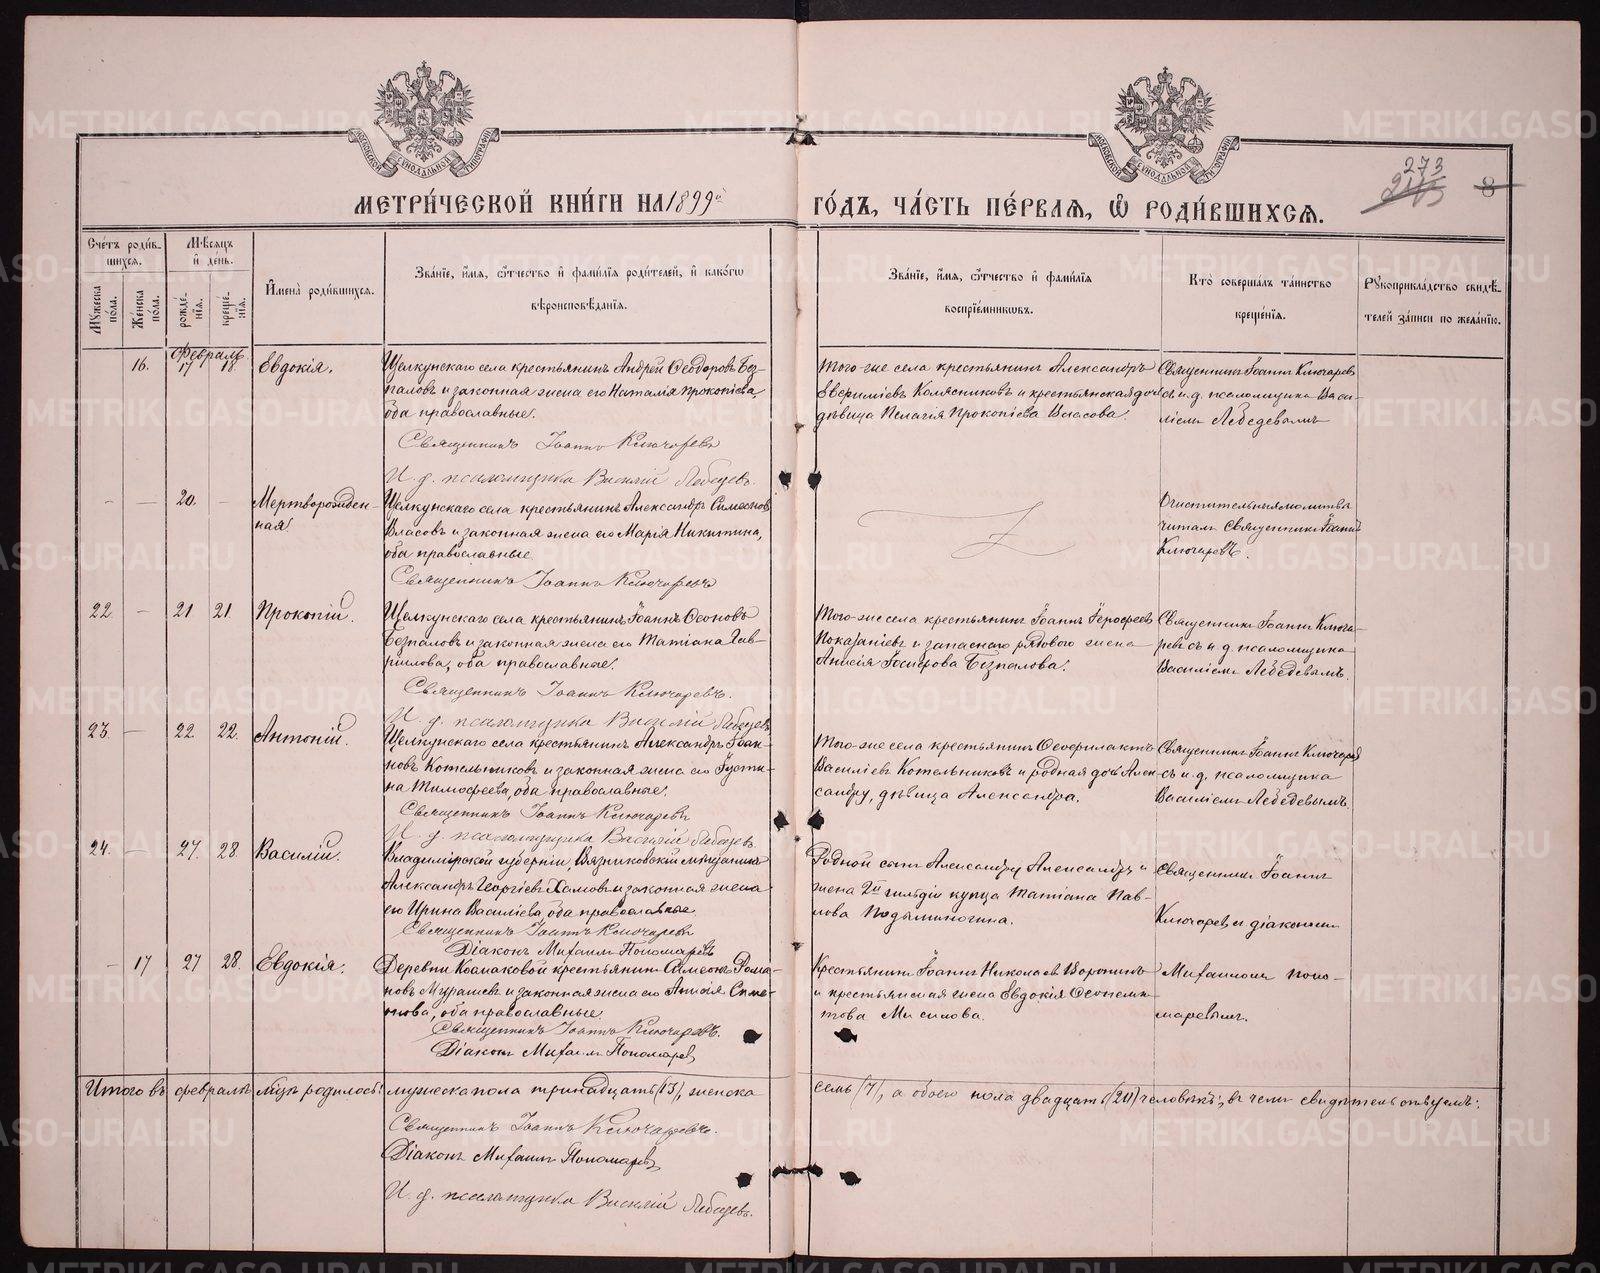 МЕТРИ́ЧЕСКОЙ КНИ́ГИ НА 1899й
ГО́ДЪ, ЧА́СТЬ ПЕ́РВАЯ, Ѡ҆ РОДИ́ВШИХСЯ.
273
8
Сче́тъ роди́вшихся.
Мѣ́сяцъ и҆ день.
И҆мена̀ роди́вшихся.
Зва́нїе, и҆́мя, ѻ҆́тчество и҆ фами́лїя роди́телей, и҆ како́гѡ
вѣроисповѣ́данїя.
Зва́нїе, и҆́мя, ѻ҆́тчество и҆ фами́лїя
воспрїе́мниковъ.
Кто̀ соверша́лъ та́инство
креще́нїя.
Рукоприкла́дство свидѣ́-
телей за́писи по жела́нїю.
Му́жеска по́ла.
Же́нска по́ла.
рожде́нїя.
креще́нїя.
Февраль
16. 17 18. Евдокія.
Щелкунскаго села крестьянинъ Андрей Ѳеодоровъ Без-
паловъ и законная жена его Наталія Прокопіева
оба православные.
Священникъ Іоаннъ Ключаревъ
И. д. псаломщика Василій Лебедевъ.
Того-же села крестьянинъ Александръ
Евѳиміевъ Колясниковъ и крестьянская дочь
дѣвица Пелагія Прокопіева Власова.
Священникъ Іоаннъ Ключаревъ
съ и.д. псаломщика Васи-
ліемъ Лебедевымъ
— — 20. — Мертворожден-
ная.
Щелкунскаго села крестьянинъ Александръ Симеоновъ
Власовъ и законная жена его Марія Никитина,
оба православные
Священникъ Іоаннъ Ключаревъ
Очистительныя молитвы
читалъ Священникъ Іоаннъ
Ключаревъ.
22. — 21 21. Прокопій.
Щелкунскаго села крестьянинъ Іоаннъ
Безпаловъ и законная жена его Татіана Гав-
риилова, оба православные.
Священникъ Іоаннъ Ключаревъ.
И. д. псаломщика Василій Лебедевъ
Того-же села крестьянинъ Іоаннъ
и запаснаго рядового жена
Анисія Безпалова.
Священникъ Іоаннъ Ключа-
ревъ съ и д. псаломщика
Василіемъ Лебедевымъ.
23. — 22. 22. Антоній.
Щелкунскаго села крестьянинъ Александръ Іоан-
новъ Котельниковъ и законная жена его Іусти-
на Тимоѳеева, оба православные.
Священникъ Іоаннъ Ключаревъ
И. д. псаломщика Василій Лебедевъ
Того-же села крестьянинъ
Василіевъ Котельниковъ и родная дочь Алек-
сандру, дѣвица Александра.
Священникъ Іоаннъ Ключаревъ
съ и.д. псаломщика
Василіемъ Лебедевымъ.
24. — 27. 28. Василій.
Владимірской губерніи, Вязниковскій мѣщанинъ
Александръ Георгіевъ Хамовъ и законная жена
его Ирина Василіева, оба православные.
Священникъ Іоаннъ Ключаревъ
Діаконъ Михаилъ Пономаревъ
Родной сынъ Александру Александръ и
жена 2й гильдіи купца Татіана Пав-
лова Подвиногина.
Священникъ Іоаннъ
Ключаревъ съ діакономъ
— 17 27 28. Евдокія.
Деревни Колмаковой крестьянинъ Симеонъ Рома-
новъ Мурашевъ и законная жена его Анисія Симе-
онова, оба православные.
Священникъ Іоаннъ Ключаревъ.
Діаконъ Михаилъ Пономаревъ
Крестьянинъ Іоаннъ Николаевъ Воронинъ
и крестьянская жена Евдокія
това.
Михаиломъ Поно-
маревымъ.
Итого въ февралѣ м҃цѣ родилось: мужеска пола тринадцать (13), женска
семь (7), а обоего пола двадцать (20) человѣкъ; въ чемъ свидѣтельствуемъ:
Священникъ Іоаннъ Ключаревъ.
Діаконъ Михаилъ Пономаревъ
И. д. псаломщика Василій Лебедевъ.
METRIKI.GASO-URAL.RU